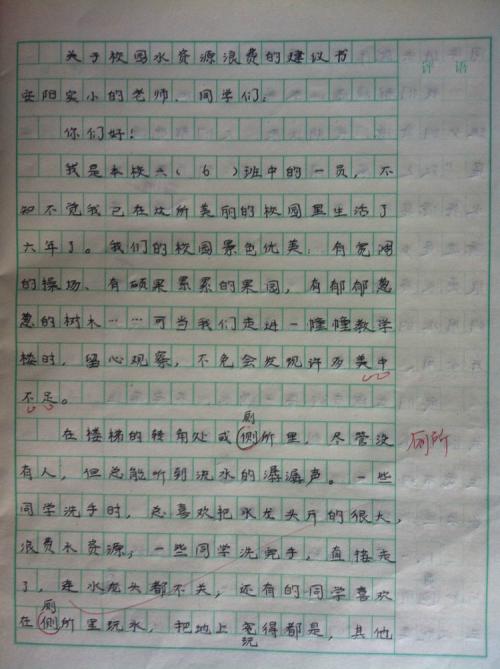 关于校园水资源浪费的建议书
评语
安阳实小的老师、同学们：
你们好！
我是本校六（6）班中的一员，不
知不觉我已在这所美丽的校园里生活了
六年了。我们的校园景色优美：有宽阔
的操场、有硕果累累的果园，有郁郁葱
葱的树木……可当我们走进一幢幢教学
楼时，留心观察，不免会发现许多美中
不足。
厕
在楼梯的转角处或侧所里，尽管没
厕所
有人，但总能听到流水的潺潺声。一些
同学洗手时，总喜欢把水龙头开的很大，
浪费水资源；一些同学洗完手，直接走
了，连水龙头都不关，还有的同学喜欢
厕
在侧所里玩水，把地上得都是，其他
玩